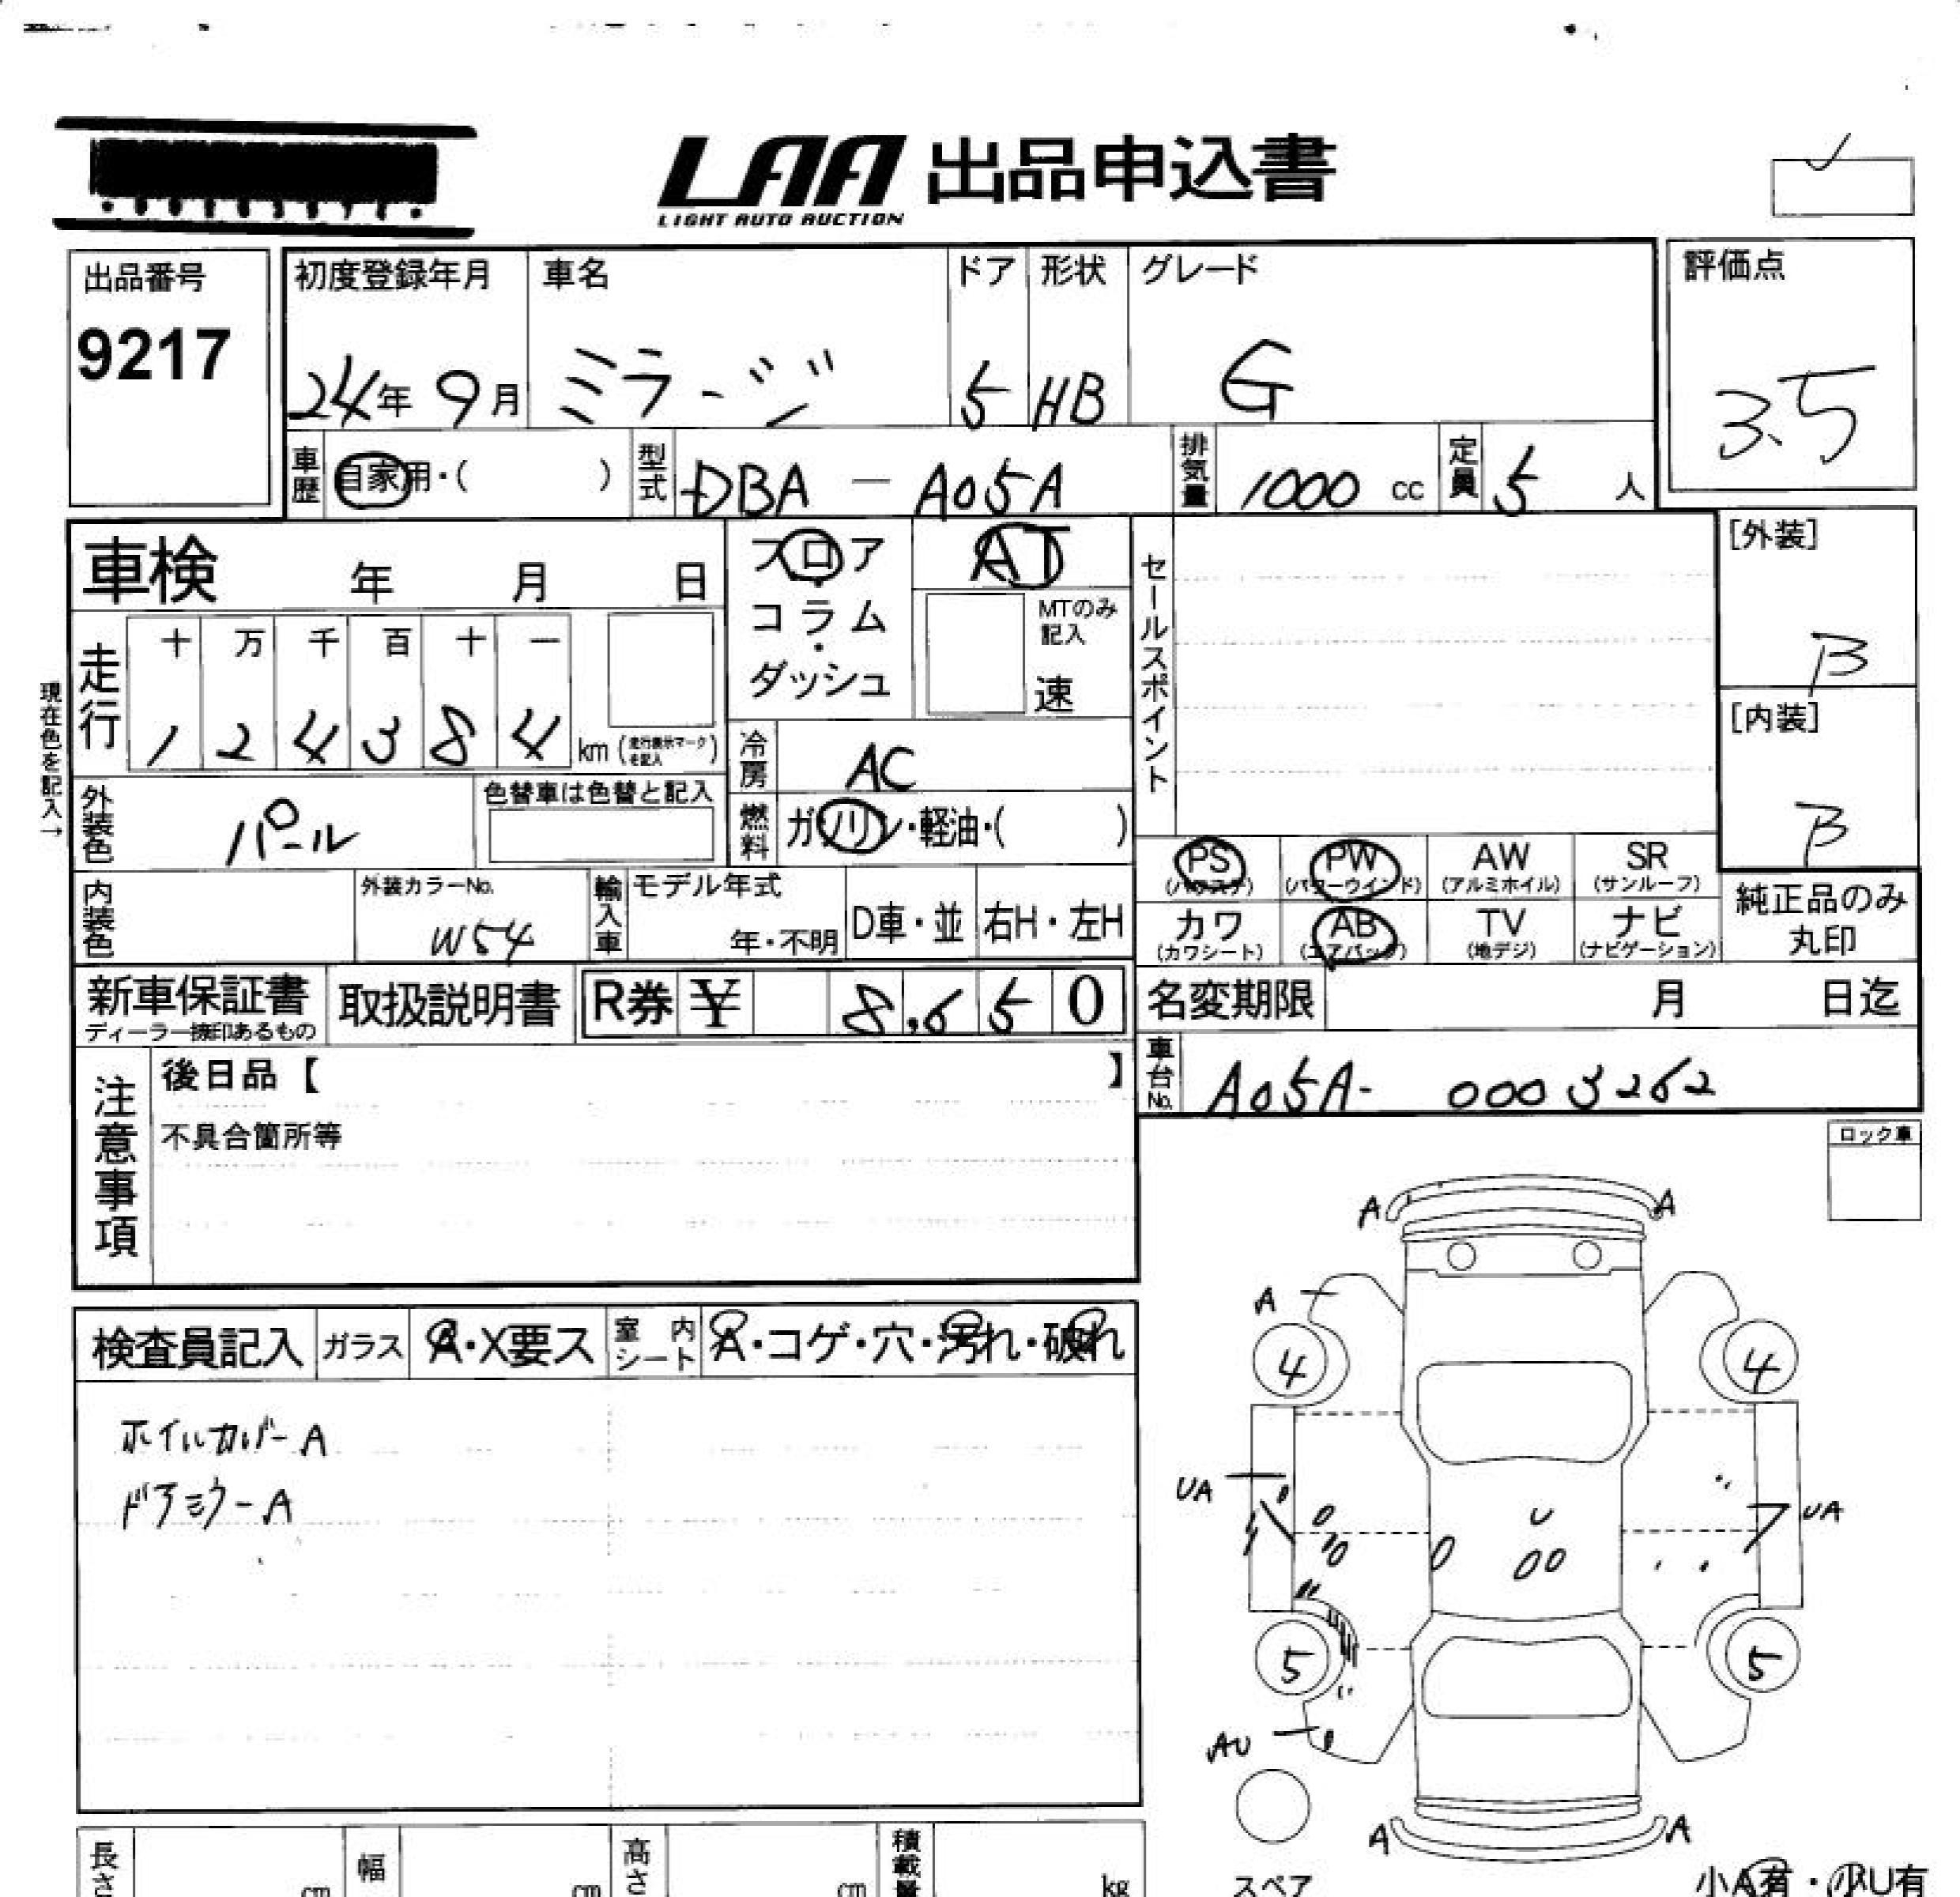 LAA 出品申込書
LIGHT AUTO AUCTION
出品番号
9217
初度登録年月 車名 ドア 形状 グレード 評価点
24年 9月 ミラージ" 5 HB G 3.5
車歴 自家用・( ) 型式 DBA - A05A 排気量 1000 cc 定員 5 人
車検 年 月 日
フロア・コラム・ダッシュ
AT
MTのみ記入
速
セールスポイント
[外装]
B
[内装]
B
現在色を記入→
走行
十 万 千 百 十 一
1 2 4 3 8 4 km (走行表示マークを記入)
冷房 AC
外装色 パール
色替車は色替と記入
燃料 ガソリン・軽油・( )
PS (パワステ) PW (パワーウインド) AW (アルミホイル) SR (サンルーフ)
カワ (カワシート) AB (エアバッグ) TV (地デジ) ナビ (ナビゲーション)
純正品のみ
丸印
内装色
外装カラーNo.
W54
輸入車 モデル年式
年・不明
D車・並 右H・左H
新車保証書
ディーラー捺印あるもの
取扱説明書
R券 ¥ 8,650
名変期限 月 日迄
車台No. A05A- 0003262
注意事項
後日品【 】
不具合箇所等
ロック車
検査員記入 ガラス A・X要ス 室内シート A・コゲ・穴・汚れ・破れ
ホイルカバーA
ドアミラーA
A A
A
4 4
UA U UA
5 5
AU
A A
スペア
小A有・小U有
長さ cm 幅 cm 高さ cm 積載量 kg